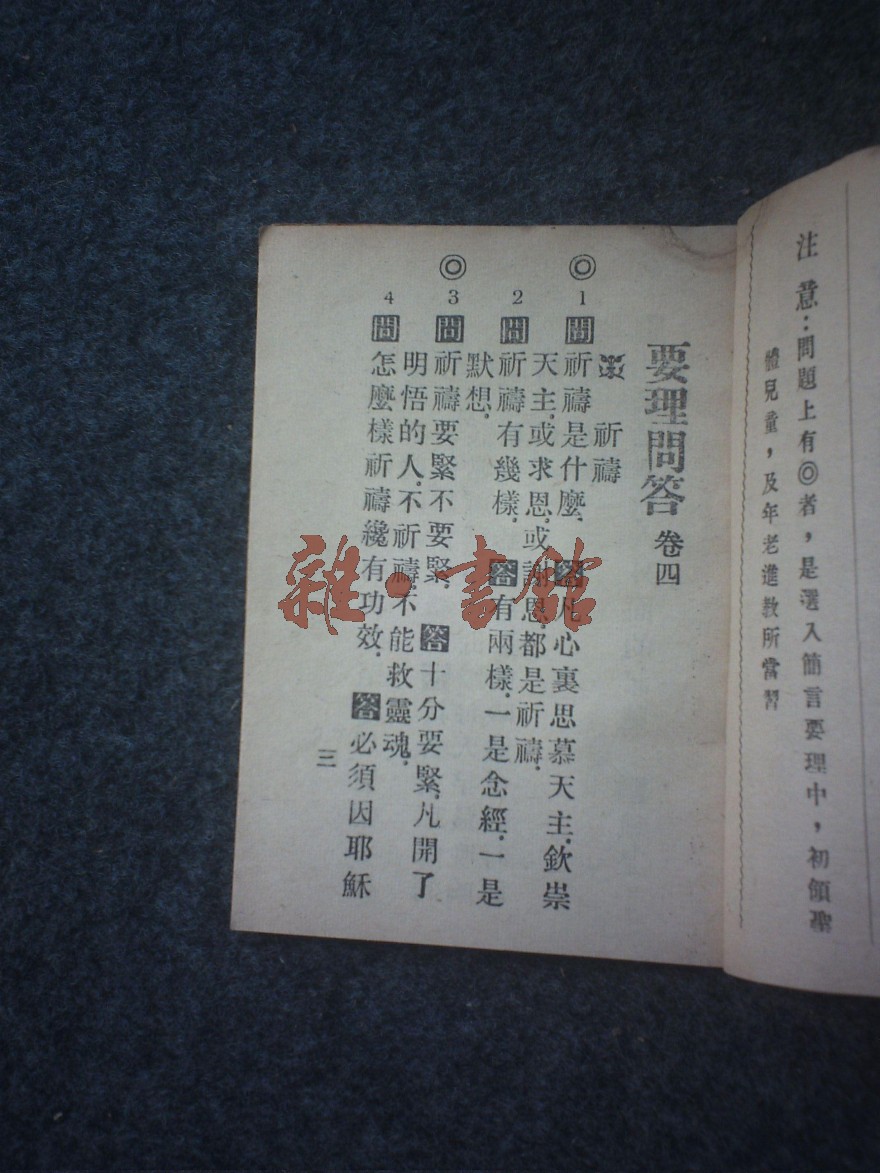 注意：問題上有◎者，是選入簡言要理中，初領聖
體兒童，及年老進教所當習
要理問答 卷四
祈禱
◎ 1 問 祈禱是什麼． 答 凡心裏思慕天主．欽崇
天主．或求恩．或謝恩．都是祈禱．
2 問 祈禱有幾樣． 答 有兩樣．一是念經．一是
默想．
◎ 3 問 祈禱要緊不要緊． 答 十分要緊．凡開了
明悟的人．不祈禱．不能救靈魂．
4 問 怎麼樣祈禱纔有功效． 答 必須因耶穌
三
雜·書館